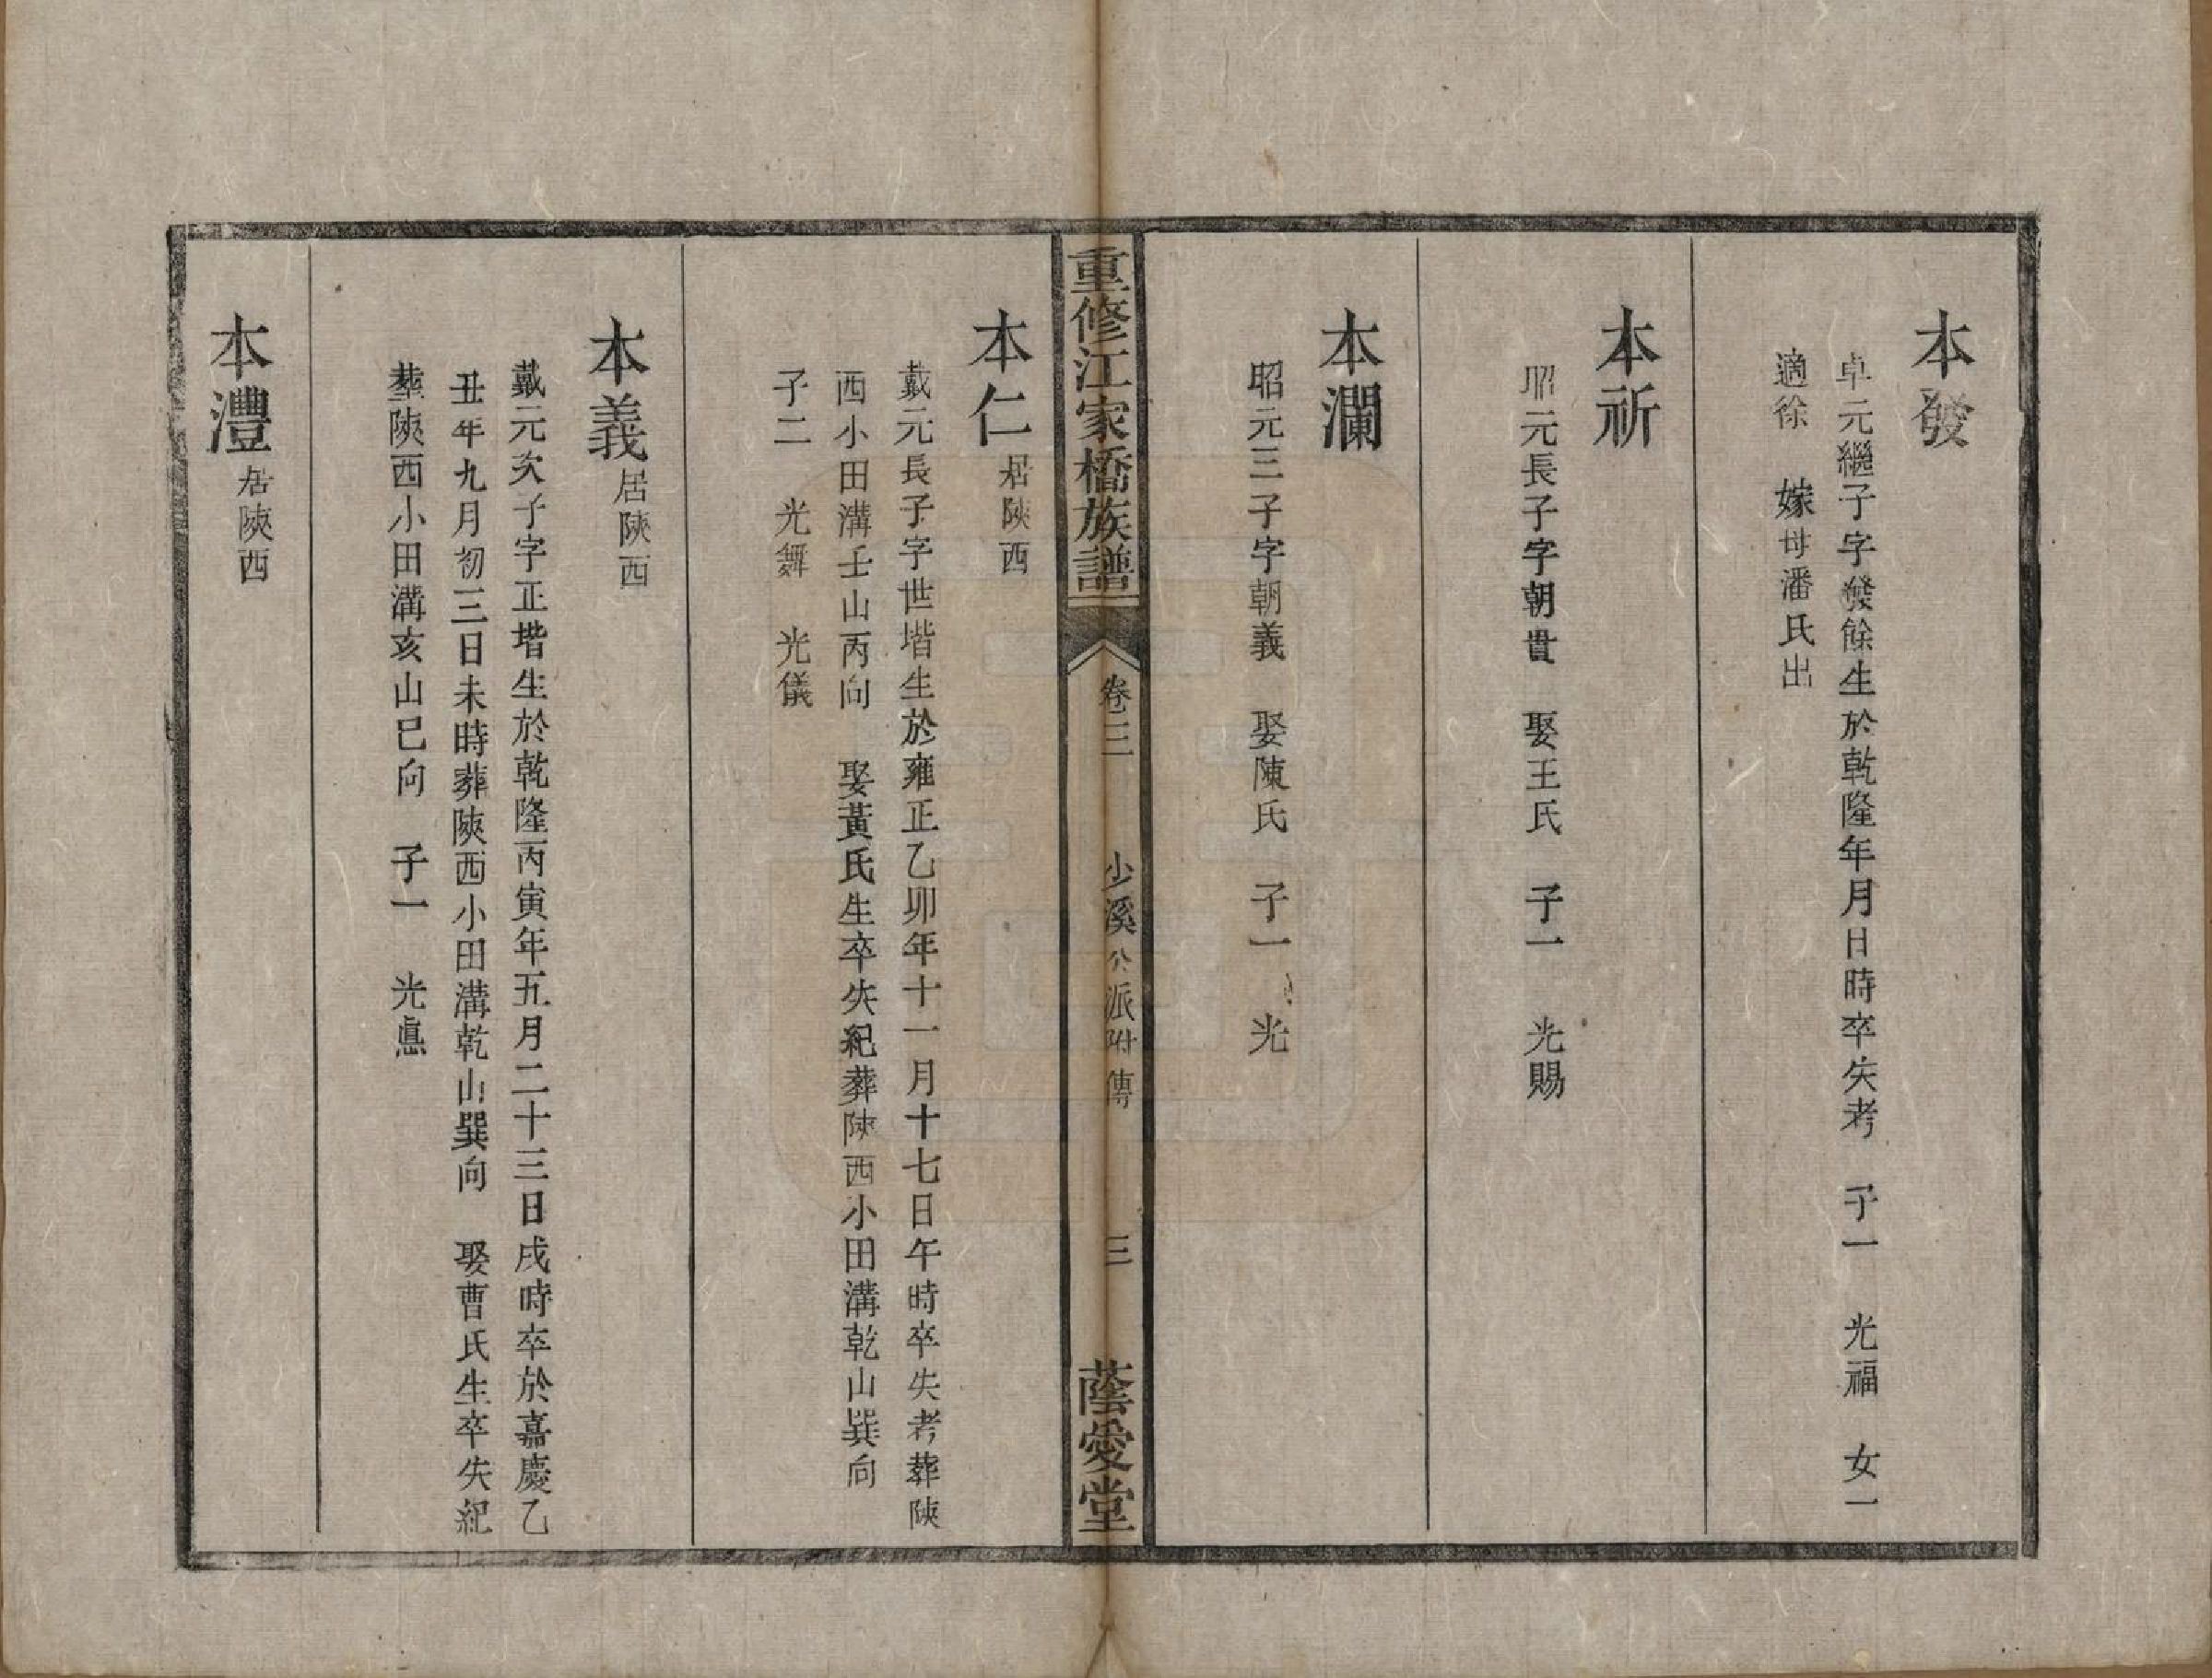 本發
卓元繼子字發餘生於乾隆年月日時卒失考　子一　光福　女一
適徐　嫁母潘氏出
本祈
昭元長子字朝貴　娶王氏　子一　光賜
本瀾
昭元三子字朝義　娶陳氏　子一　光
重修江家橋族譜　卷三　少溪公派附傳　三　蔭愛堂
本仁居陝西
戴元長子字世堦生於雍正乙卯年十一月十七日午時卒失考葬陝
西小田溝壬山丙向　娶黃氏生卒失紀葬陝西小田溝乾山巽向
子二　光舞　光儀
本義居陝西
戴元次子字正堦生於乾隆丙寅年五月二十三日戌時卒於嘉慶乙
丑年九月初三日未時葬陝西小田溝乾山巽向　娶曹氏生卒失紀
塟陝西小田溝亥山巳向　子一　光悳
本灃居陝西